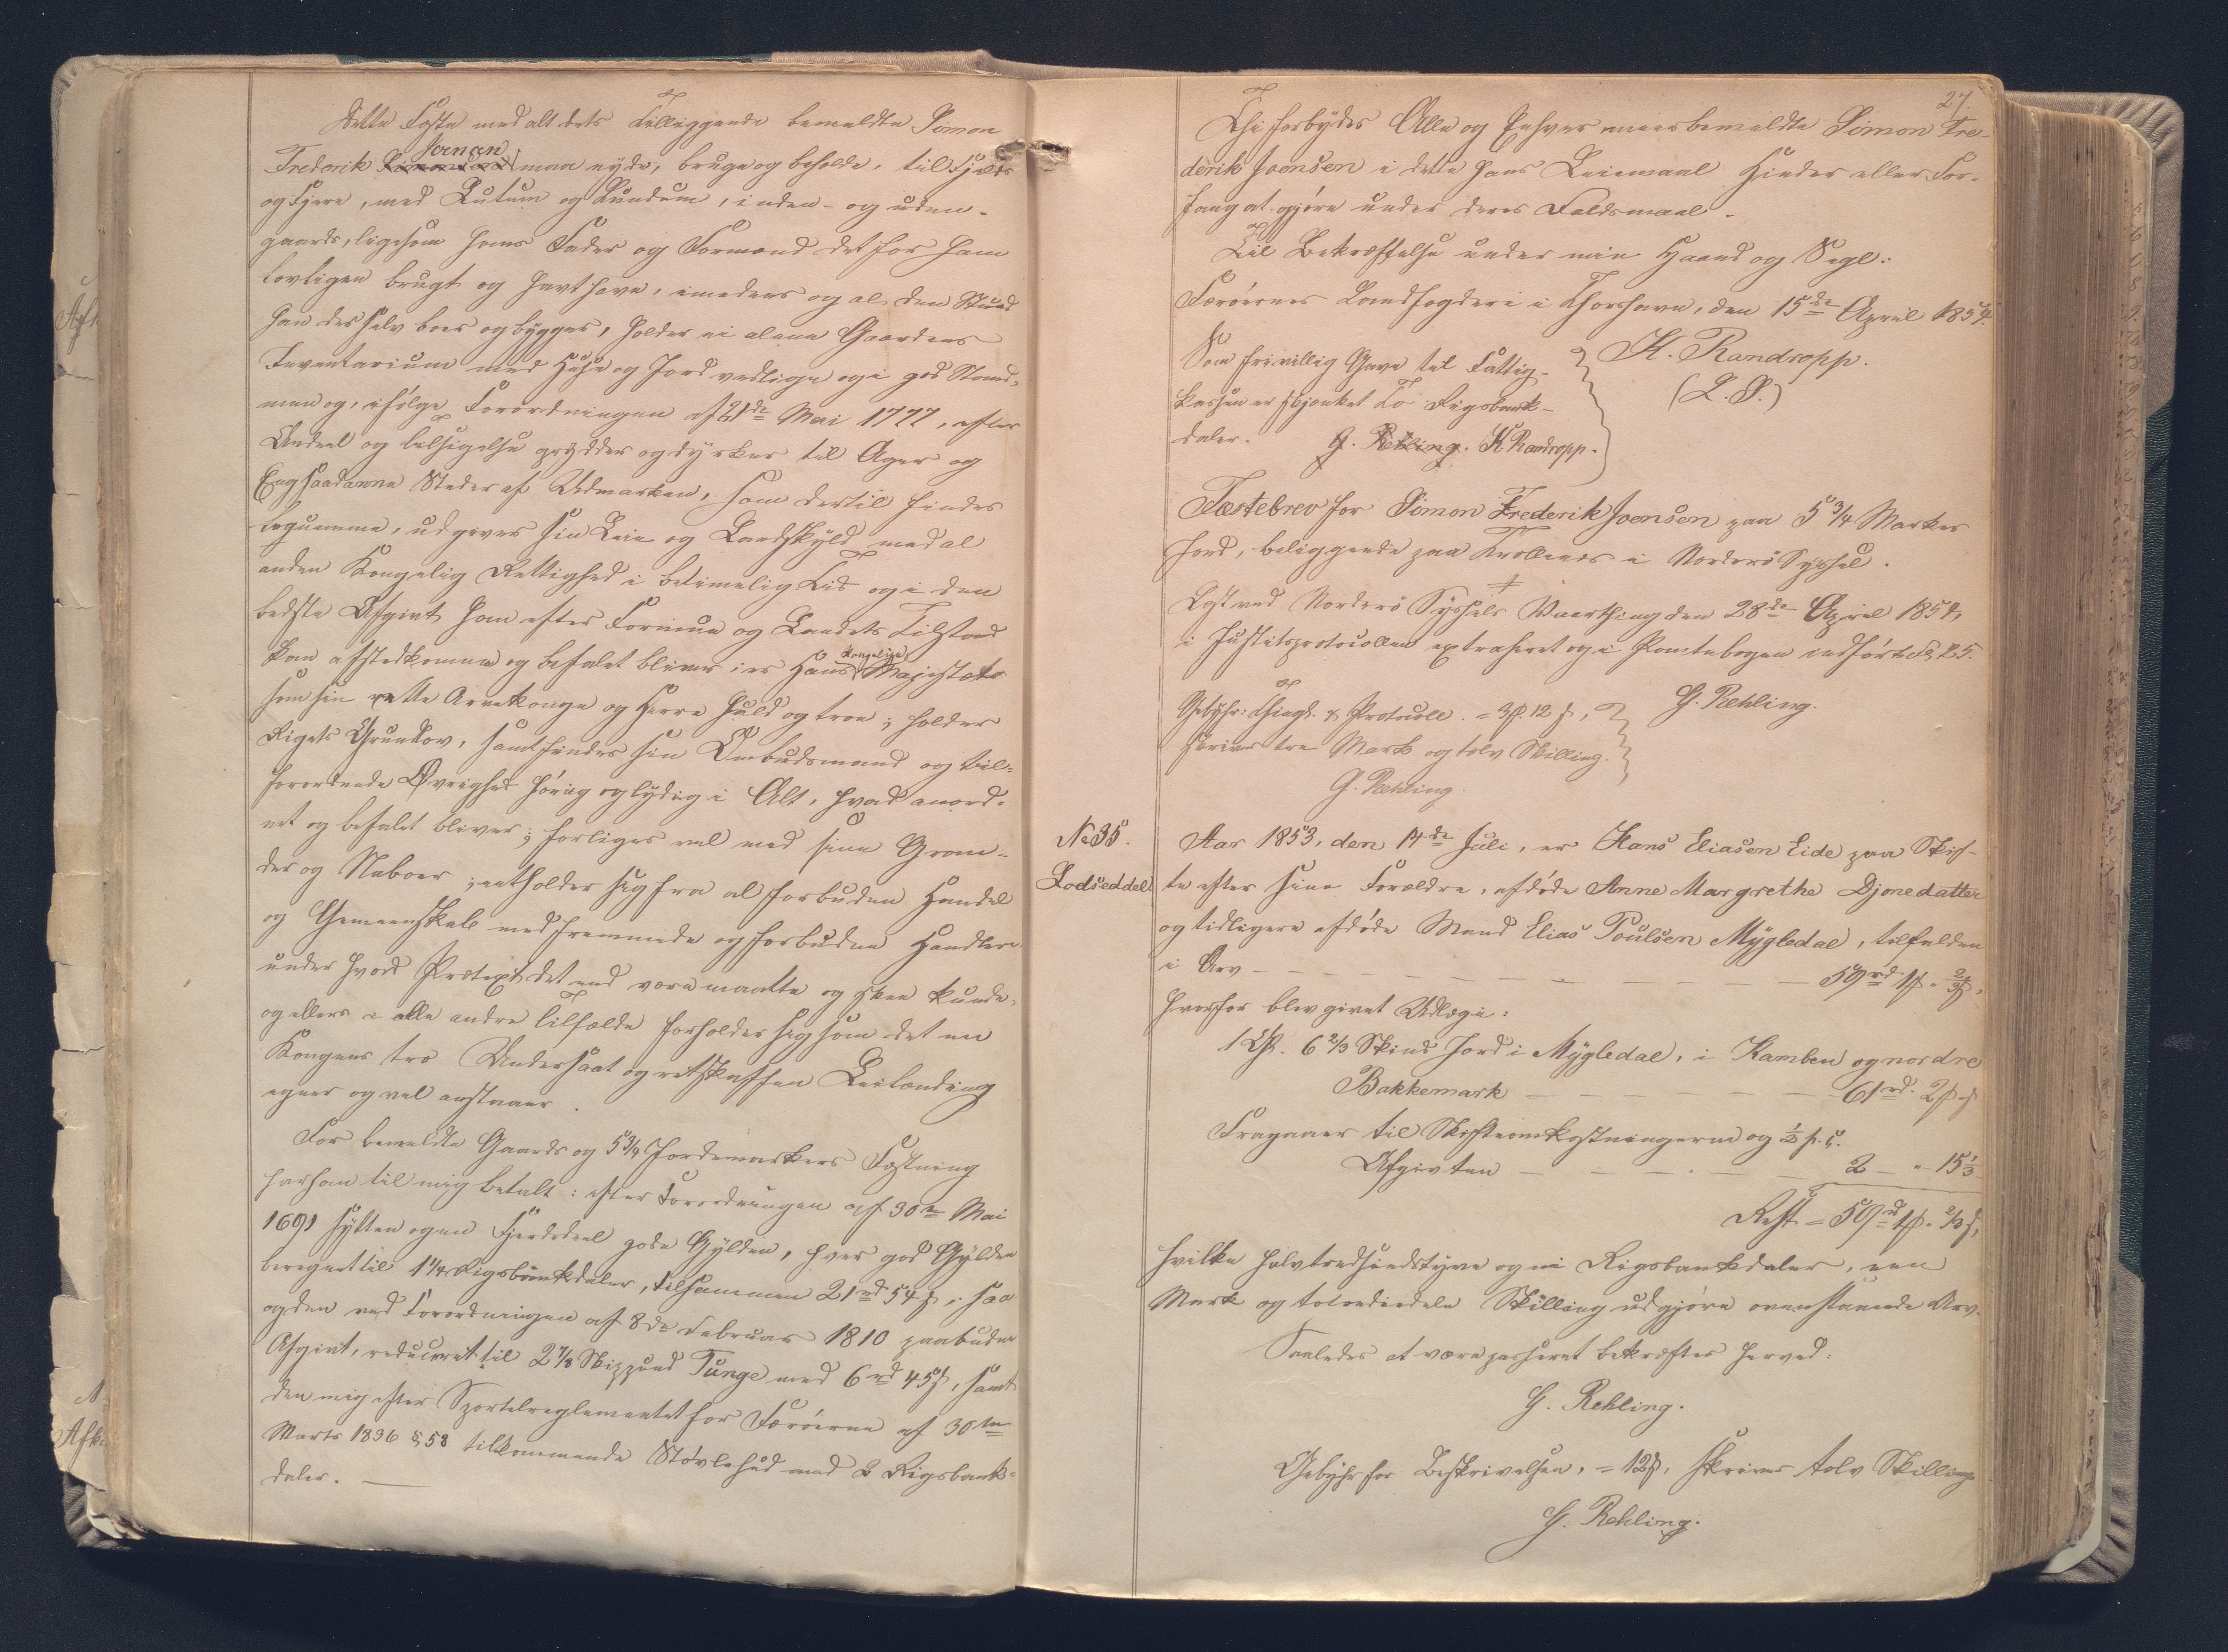 Dette Fæste med alt dets Tilliggende bemeldte Simon
Frederik Joensen maa nyde, bruge og beholde, til Fjelds
og Fjære, med Lutum og Lundum, inden- og uden-
gaards, ligesom hans Fader og Formænd det for ham
lovligen brugt og havt have, imedens og al den Stund
han der selv boer og bygger, holder ei alene Gaardens
Inventarium med Huse og Jord vedlige og i god Stand,
men og, ifølge Forordningen af 21de Mai 1777, efter
Andeel og Leilighed grydder og dyrker til Ager og
Eng saadanne Steder af Udmarken, som dertil findes
beqvemme, udgiver sin Leie og Landskyld med al
anden Kongelig Rettighed i betimelig Tid og i den
bedste Afgivt som efter Formue og Landets Tilstand
kan afstedkomme og befalet bliver; er Hans Kongelige Majestæt
som sin rette Arvekonge og Herre huld og troe; holder
Rigets Grundlov, samt findes sin Ombudsmand og til-
forordnede Øvrighed hørig og lydig i Alt, hvad anord-
net og befalet bliver; forliges vel med sine Gran-
der og Naboer; entholder sig fra al forbuden Handel
og Gemeenskab med fremmede og forbudne Handlere
under hvad Prætext det end være maatte og skee kunde,
og ellers i alle andre Tilfælde forholder sig som det en
Kongens tro Undersaat og retskaffen Leilænding
egner og vel anstaaer.
For bemeldte Gaards og 5 3/4 Jordemarkers Fæstning
har han til mig betalt: efter Forordningen af 30te Mai
1691 sytten og en Fjerdedeel gode Gylden, hver god Gylden
beregnet til 1 1/4 Rigsbankdaler, tilsammen 21 rd 54 ß, saa
og den ved Forordningen af 8de Februar 1810 paabudne
Afgivt, reduceret til 2 7/8 Skippund Tunge med 6 rd 45 ß, samt
den mig efter Sportelreglementet for Færøerne af 30te
Marts 1836 § 58 tilkommende Støvlehud med 2 Rigsbank-
daler.
27.
Thi forbydes Alle og Enhver meerbemeldte Simon Fre-
derik Joensen i dette hans Leiemaal Hinder eller For-
fang at gjøre under deres Faldsmaal.
Til Bekræftelse under min Haand og Segl.
Færøernes Landfogderi i Thorshavn, den 15de April 1854.
H. Randropp.
(L.S.)
Som frivillig Gave til Fattig-
kassen er skjænket To Rigsbank-
daler.
G. Rehling. H. Randropp.
Fæstebrev for Simon Frederik Joensen paa 5 3/4 Marker
Jord, beliggende paa Trøllenes i Norderø Syssel.
Læst ved Norderø Syssels Vaarthing den 28de April 1854,
i Justitsprotocollen extraheret og i Pantebogen indført Fol. 25.
G. Rehling.
Gebyhr: Thingl. & Protocoll. = 3 ℳ 12 ß,
skriver tre Mark og tolv Skilling.
G. Rehling.
No 35.
Lodseddel
Aar 1853, den 14de Juli, er Hans Eliasen Eide paa Skif-
te efter sine Forældre, afdøde Anne Margrethe Djonedatter
og tidligere afdøde Mand Elias Poulsen Mygledal, tilfalden
i Arv - - - 59 rd 1 ℳ " 2/3 ß,
hvorfor blev givet Udlæg i:
1 Gl. 6 2/3 Skind Jord i Mygledal, i Kamben og nordre
Bakkemark - - - 61 rd. 2 ℳ " ß
Fragaaer til Skifteomkostningerne og 1/2 p. c.
Afgivten - - - 2 - " 15 1/3
Rest = 59 rd 1 ℳ " 2/3 ß,
hvilke halvtredsindstyve og ni Rigsbankdaler, een
Mark og totrediedele Skilling udgjøre ovenstaaende Arv.
Saaledes at være passeret bekræftes herved:
G. Rehling.
Gebyhr for Beskrivelsen, = 12 ß, skriver tolv Skilling
G. Rehling.